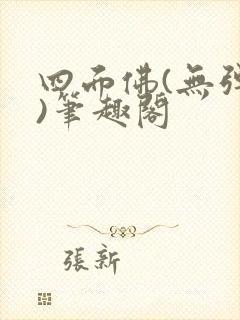 四而佛(無彈
)筆趣閣
張新